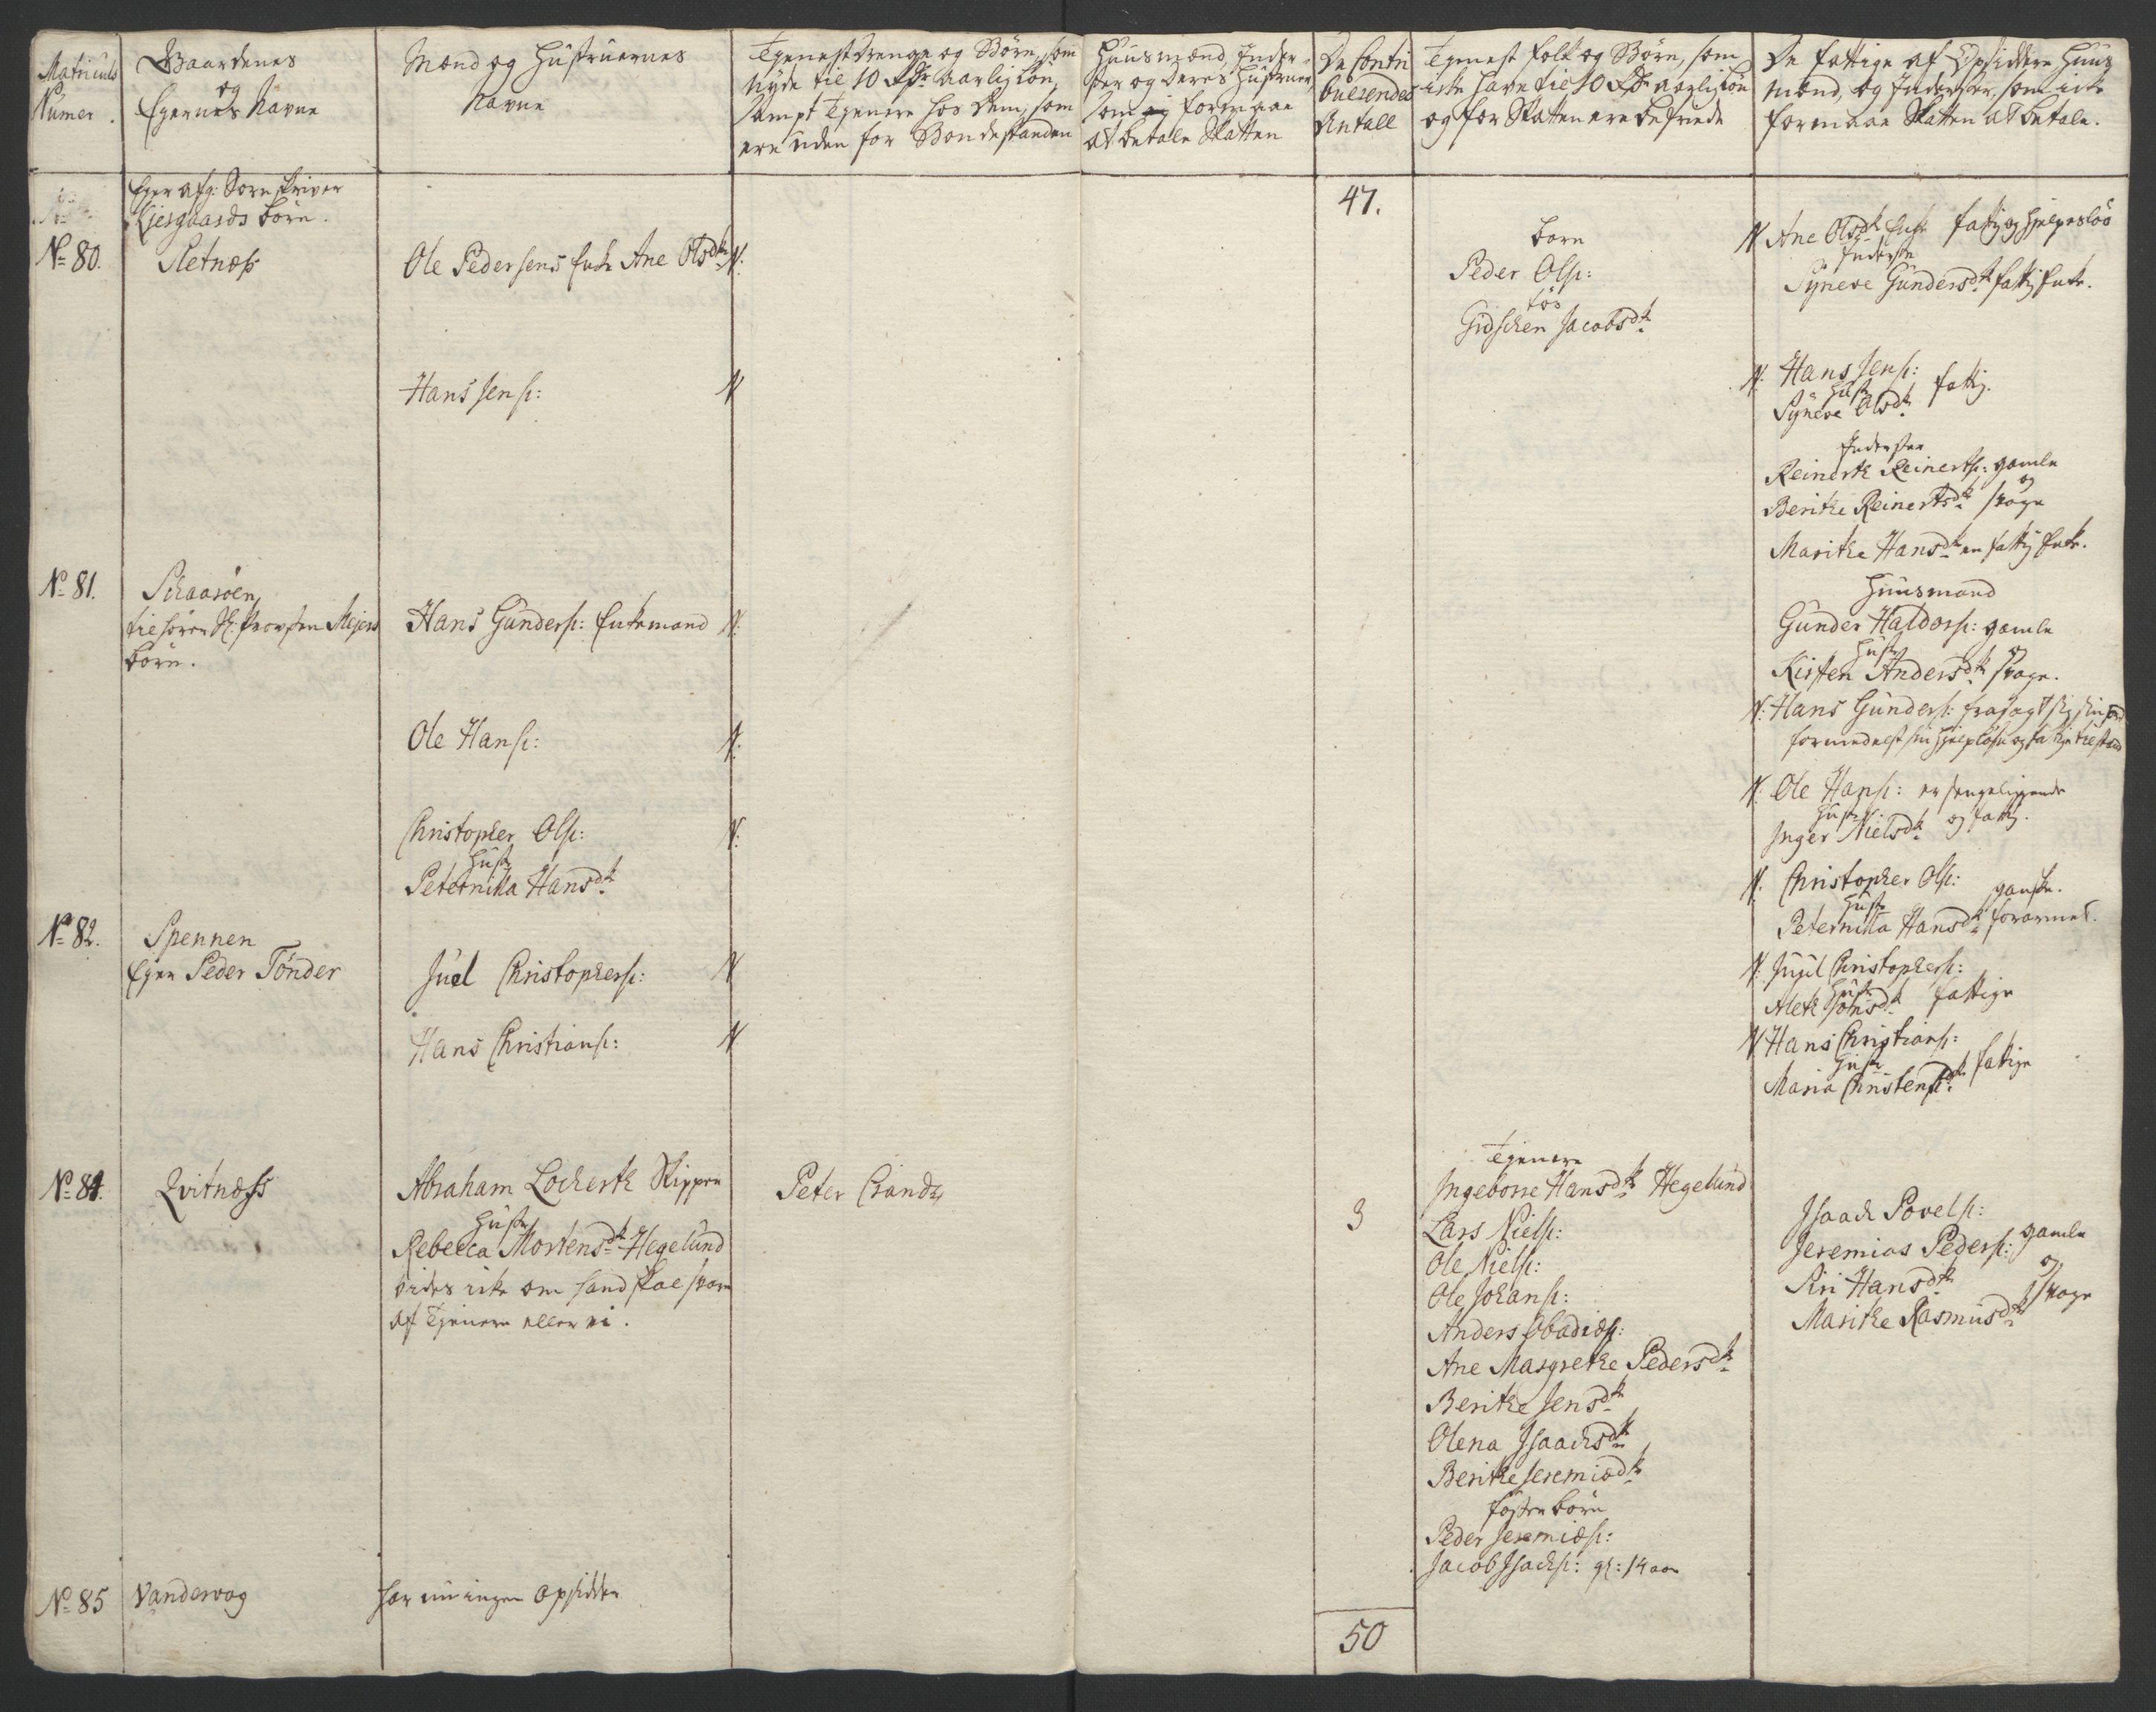 Matriculs
Numer.
Gaardenes
og
Eyernes Navne
Mænd og Hustruernes
Navne
Tjenestdrenge og Börn, som
nyde til 10 Rdr aarlig Lön
sampt Tjenere hos dem, som
ere uden for Bondestanden
Huusmænd, Inder-
ster og deres Hustruer,
som formaae
at betale Skatten
De Contri
buerendes
Antall
Tjenest folk og Börn, som
icke have til 10 Rdr aarlig Lön
og for Skatten ere befriede
De fattige af Opsiddere Huus
mænd, og Inderster, som icke
formaae Skatten at betale.
Eyer afg: Sorenskriver
Kiergaards börn.
47.
No 80.
Sletnæss
Ole Pedersens Enke Ane Olsdtr N:
born
Peder Ols:
Gidschen Jacobsdtr
N Ane Olsdtr Enke fattig og hjelpeslös
Inderste
Syneve Gundersdtr fattig Enke.
Hans Jens: N
N: Hans Jens:
Hustr fattig.
Syneve Olsdtr
Inderster
Reinert Reinerts: gamle
og
Berithe Reinertsdtr svage
Marithe Hansdtr en fattig Enke.
No 81.
Schaaröen
tilhörer Hr. Provsten Mejers
börn.
Hans Gunders: Enkemand N:
Huusmand
Gunder Haldors: gamle
Hustr og
Kirsten Andersdtr svage.
N: Hans Gunders: frasagt sig sin
formedelst sin hjelplöse og fattige tilstand
Ole Hans: N:
N: Ole Hans: er sengeliggende
Hustr og fattig.
Inger Nielsdtr
Christopher Ols: N:
Hustr
Peternilla Hansdtr
N: Christopher Ols:
Hustr ganske
Peternilla Hansdtr forarmet.
No 82.
Spennen
Eyer Peder Tönder
Juel Christophers: N
N: Juul Christophers:
Hustr
Aleth Johnsdtr fattige
Hans Christians: N
N Hans Christians:
Hustr
Maria Christensdtr fattige
No 84.
Qvitnæss
Abraham Lockerth Skipper
Hustr
Rebecca Mortensdtr Hegelund
vides icke om hand skal svare
af Tjenere eller ei.
Peter Crandtz
3
Tjenere
Ingeborre Hansdtr Hegelund
Lars Niels:
Ole Niels:
Ole Johans:
Anders Obadiæs:
Ane Margrethe Pedersdtr
Berithe Jensdtr
Olena Isaachsdtr
Berithe Jeremiædtr
foster börn
Peder Jeremiæs:
Jacob Isachs: gl: 14 aar
Isaach Povels:
Jeremias Peders: gamle
og
Siri Hansdtr svage
Marithe Rasmusdtr
No 85
Vandervog
har nu ingen Opsidder
50